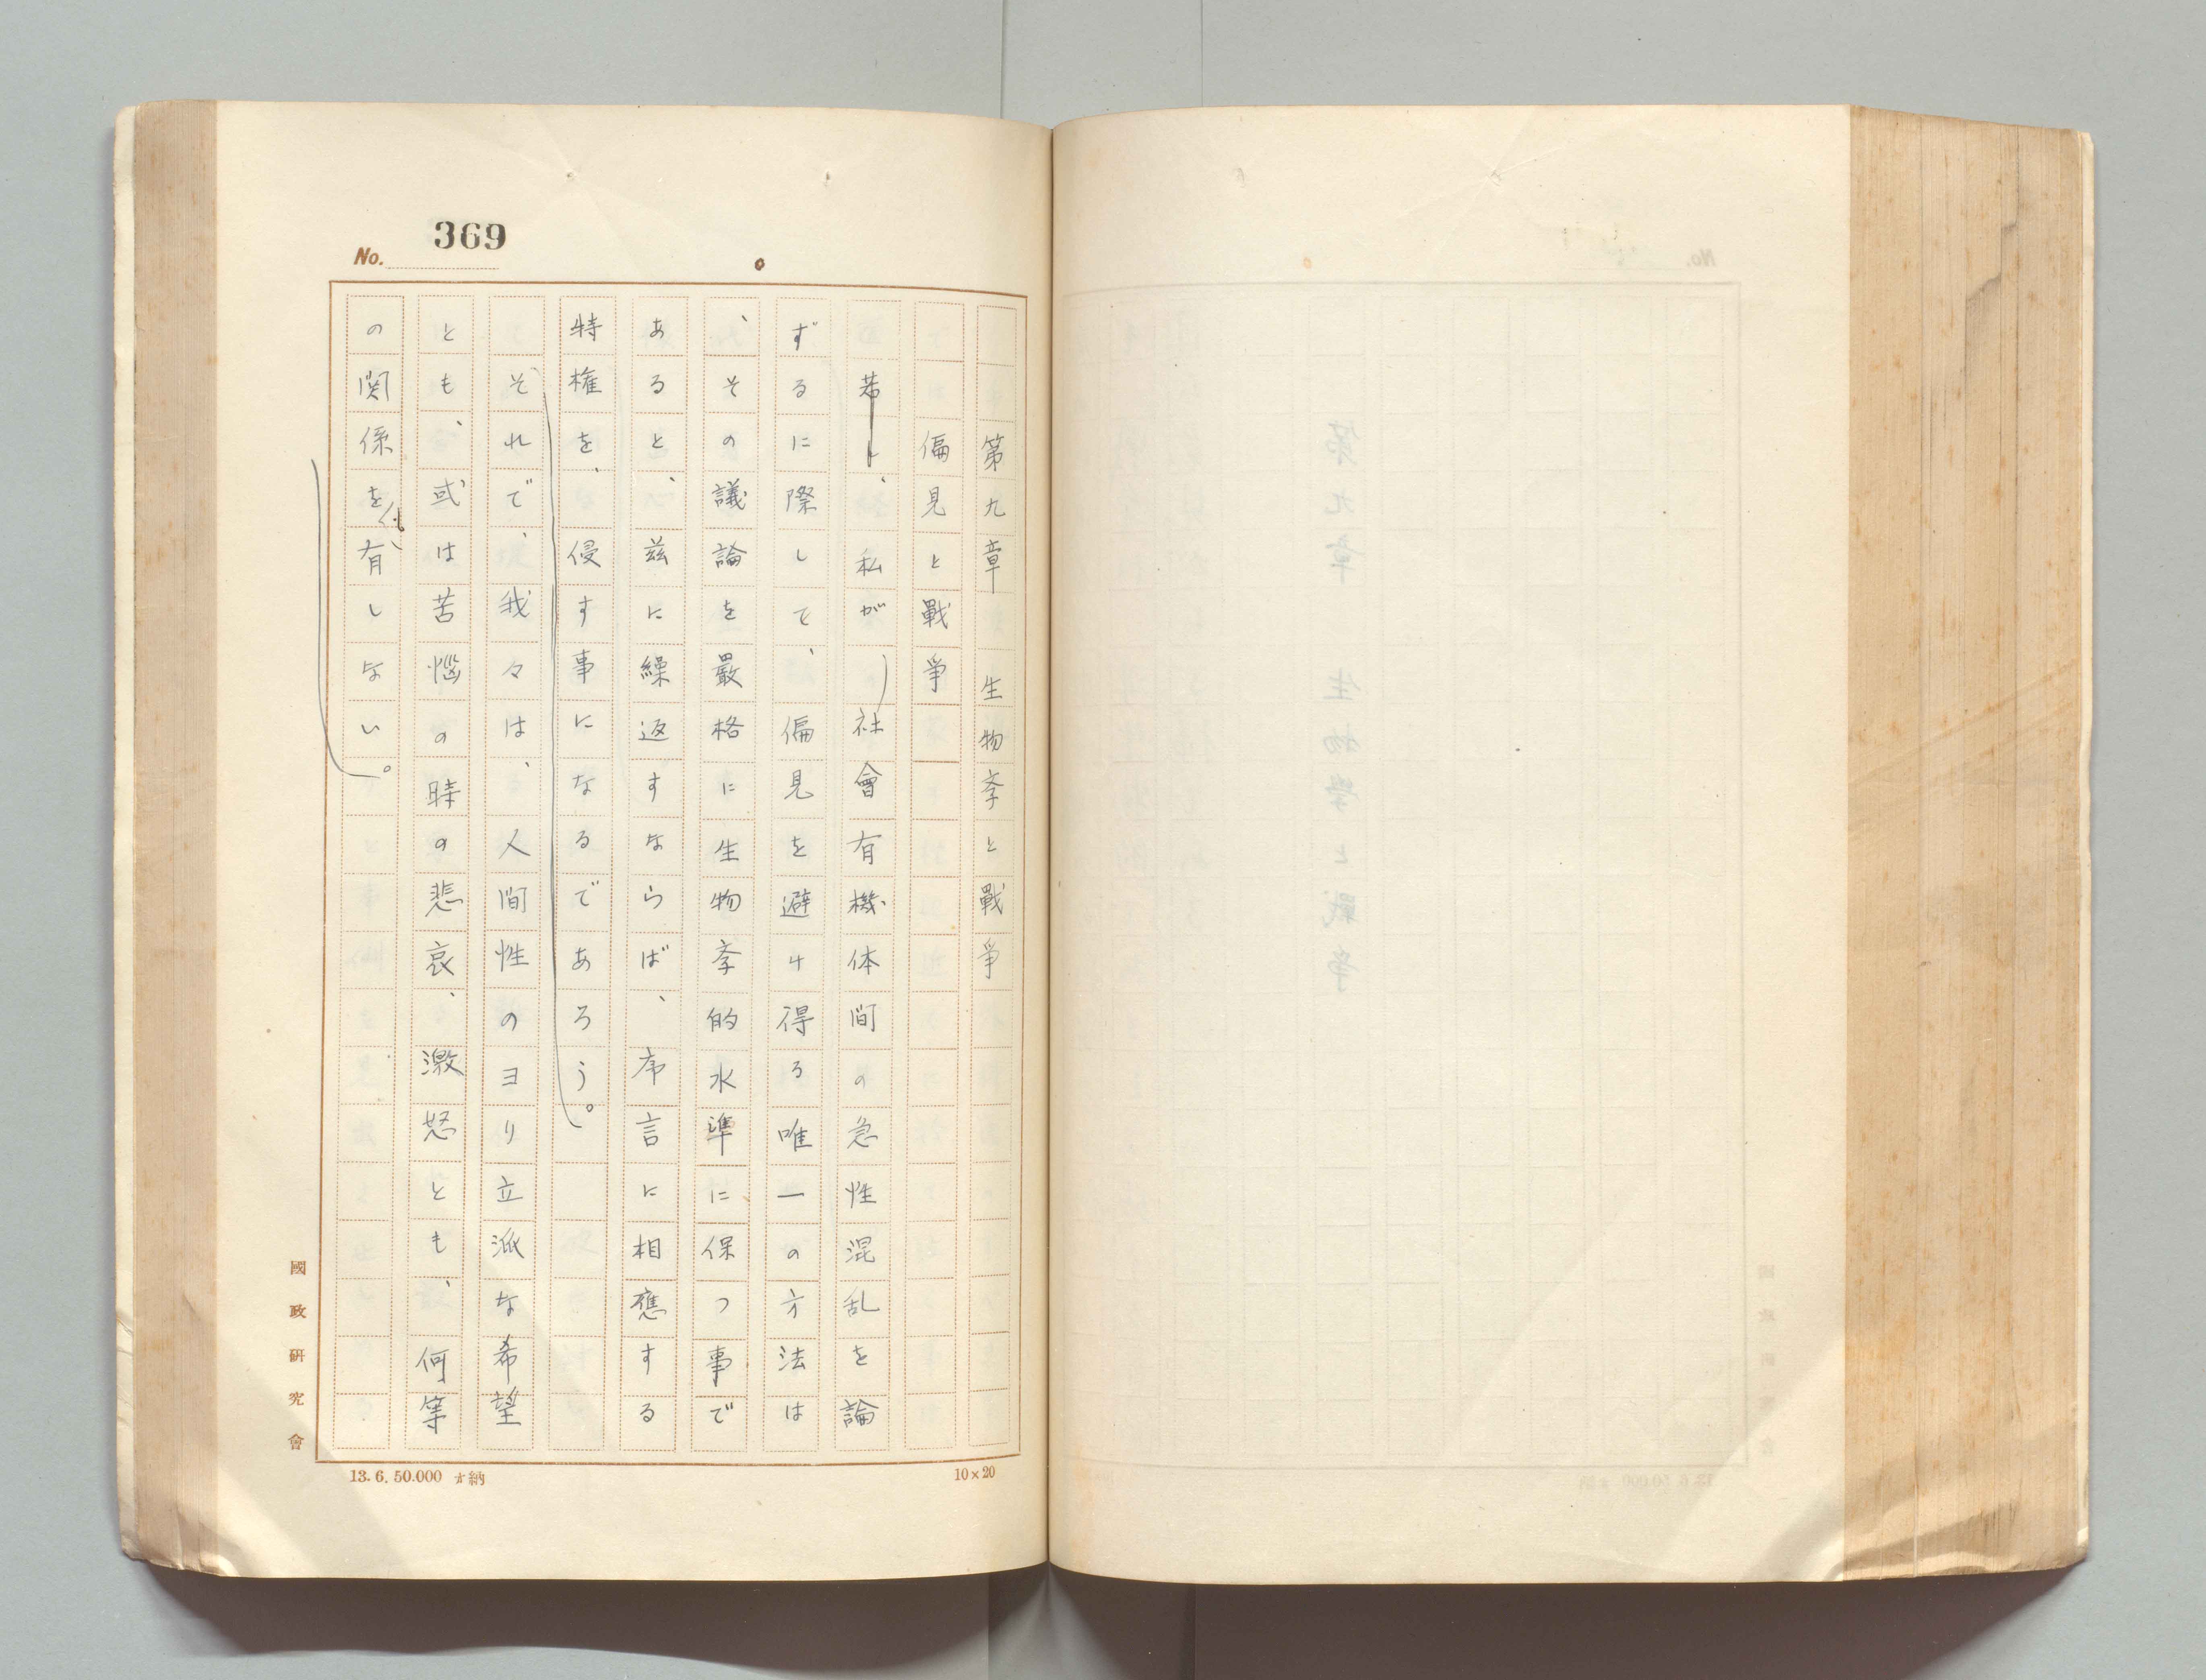 369
No.
第九章　生物学と戰爭
偏見と戰爭
若し、私が社會有機体間の急性混乱を論
ずるに際して、偏見を避け得る唯一の方法は
、その議論を嚴格に生物学的水準に保つ事で
あると、茲に繰返すならば、序言に相應する
特権を、侵す事になるであろう。
それで、我々は、人間性のヨリ立派な希望
とも、或は苦悩の時の悲哀、激怒とも、何等
の関係を有しない。
國政研究會
13.6.50.000 納
10×20